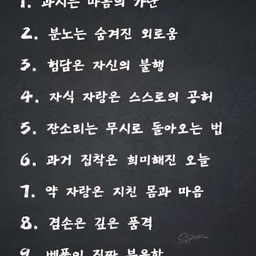 1. 과시는 마음의 가난
2. 분노는 숨겨진 외로움
3. 험담은 자신의 불행
4. 자식 자랑은 스스로의 공허
5. 잔소리는 무시로 돌아오는 법
6. 과거 집착은 희미해진 오늘
7. 약 자랑은 지친 몸과 마음
8. 겸손은 깊은 품격
9.